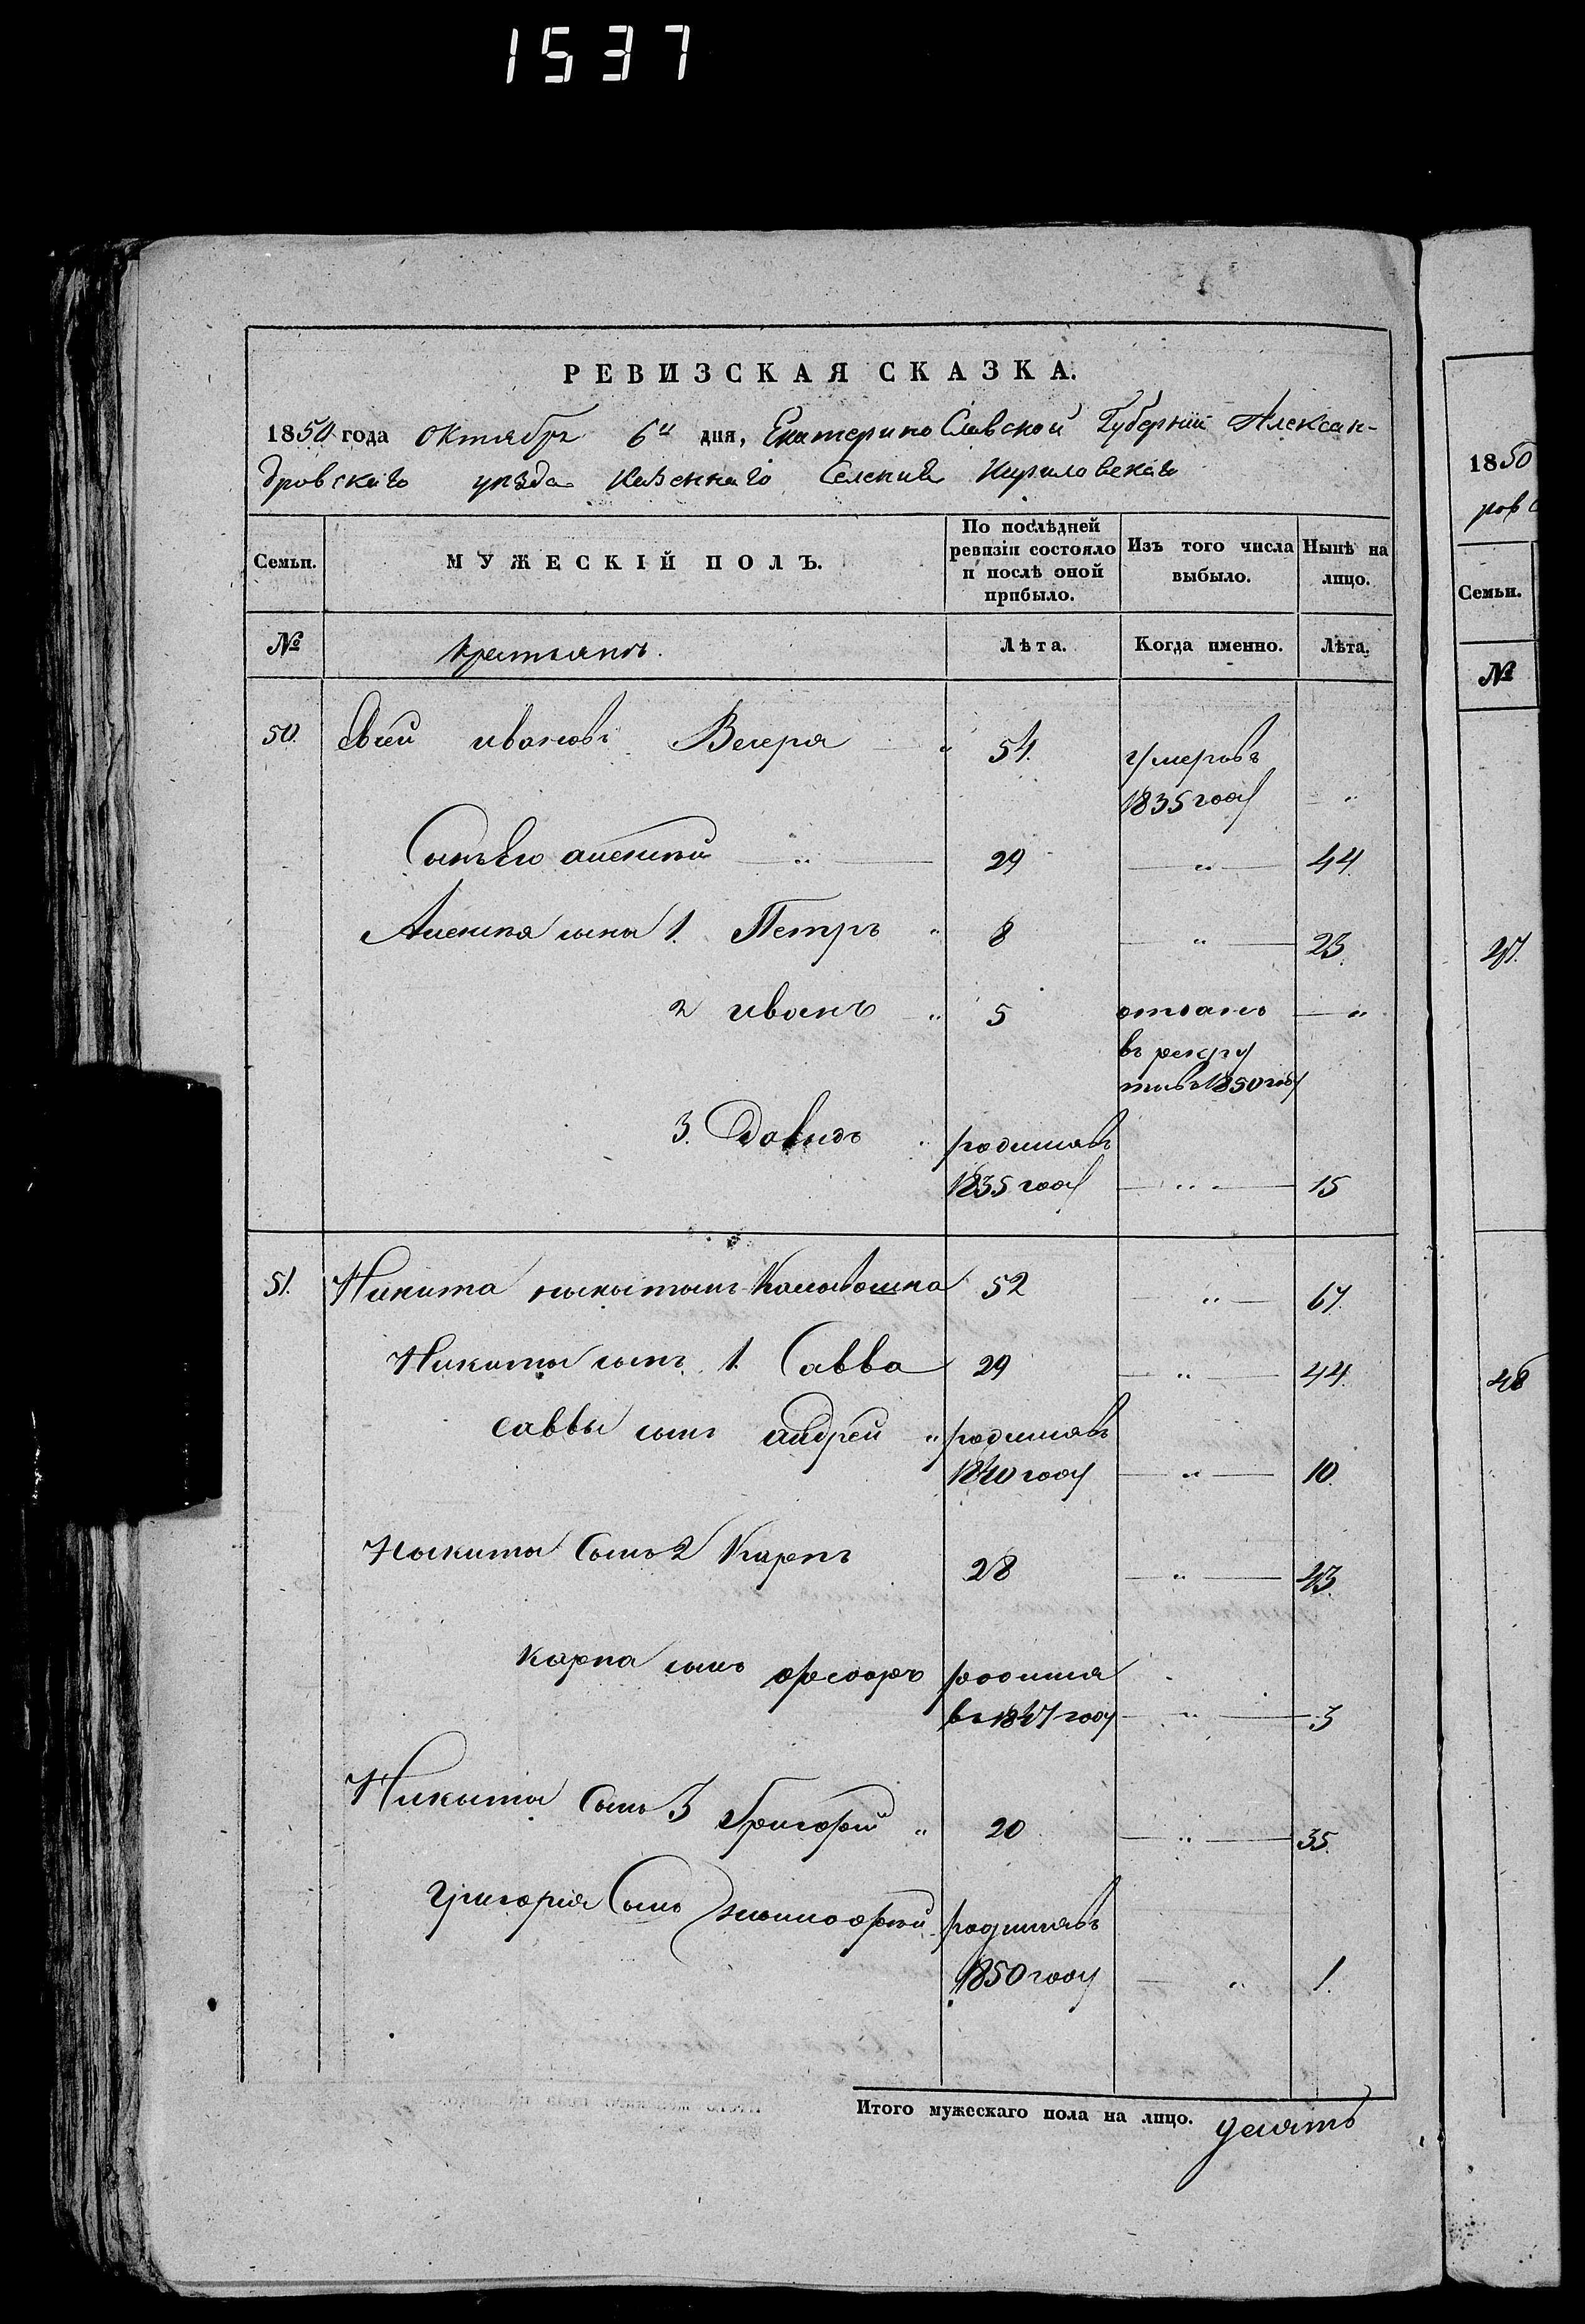 1537
РЕВИЗСКАЯ СКАЗКА.
1850 года октября 6го дня, Екатеринославской Губернии Алексан-
дровскаго уезда Казеннаго Селения Кириловскаго
Семьи.
МУЖЕСКІЙ ПОЛЪ.
По послѣдней ревизіи состояло и послѣ оной прибыло.
Изъ того числа выбыло.
Нынѣ на лицо.
№ крестьянъ. Лѣта. Когда именно. Лѣта.
50. ивановъ Вечеря " 54. умеръ въ
1835 году "
Сынъ Его алексѣй " 29 " 44.
Алексѣя сынъ 1. Петръ " 8 " 23.
2 иванъ " 5 отданъ "
въ рекру
ты въ 1850 году
3. Давидъ " родился въ
1835 году " 15
51. Никита 52 " 67.
Никиты сынъ 1. Савва 29 " 44.
саввы сынъ андрей " родился въ
1840 году " 10.
Никиты Сынъ 2 Карпъ 28 " 43.
Карпа сынъ федоръ родился
въ 1847 году " 3
Никиты Сынъ 3 Григорій " 20 " 35.
Григорія Сынъ родился въ
1850 году " 1.
Итого мужескаго пола на лицо. десять
1850
ров
Семьи.
№
47.
48